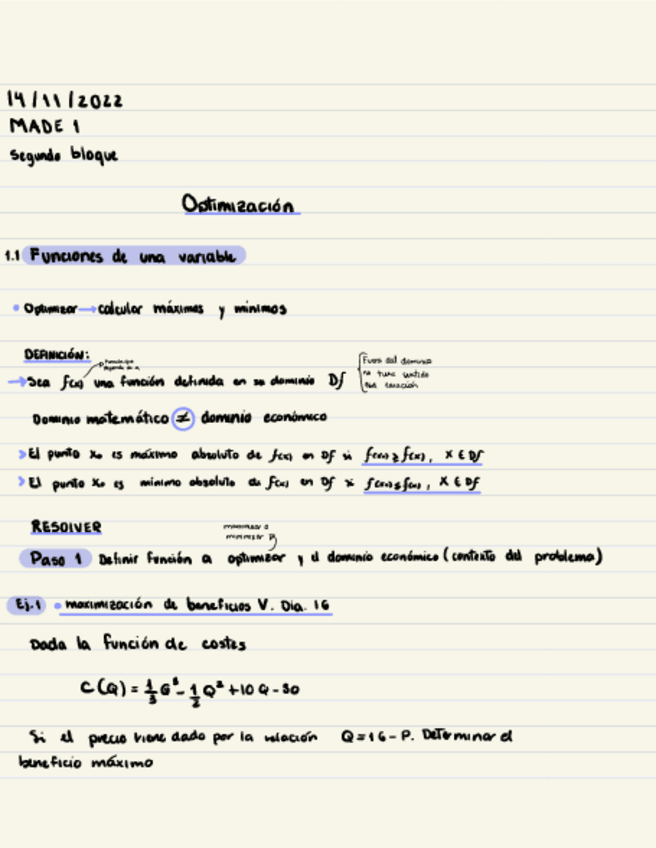 14/11/2022
MADE 1
Segundo bloque
Optimización
1.1 Funciones de una variable
• Optimizar → calcular máximos y mínimos
DEFINICIÓN:
función que
depende de x
→ Sea f(x) una función definida en su dominio Df
Fuera del dominio
no tiene sentido
Dominio matemático ≠ dominio económico
> El punto x₀ es máximo absoluto de f(x) en Df si f(x₀) ≥ f(x), x ∈ Df
> El punto x₀ es mínimo absoluto de f(x) en Df si f(x₀) ≤ f(x), x ∈ Df
RESOLVER
maximizar o
minimizar
Paso 1 Definir función a optimizar y el dominio económico (contexto del problema)
Ej.1 • maximización de beneficios V. Dia. 16
Dada la función de costes
C(Q) = 1/3 Q³ - 1/2 Q² + 10 Q - 30
Si el precio viene dado por la relación Q = 16 - P. Determinar el
beneficio máximo